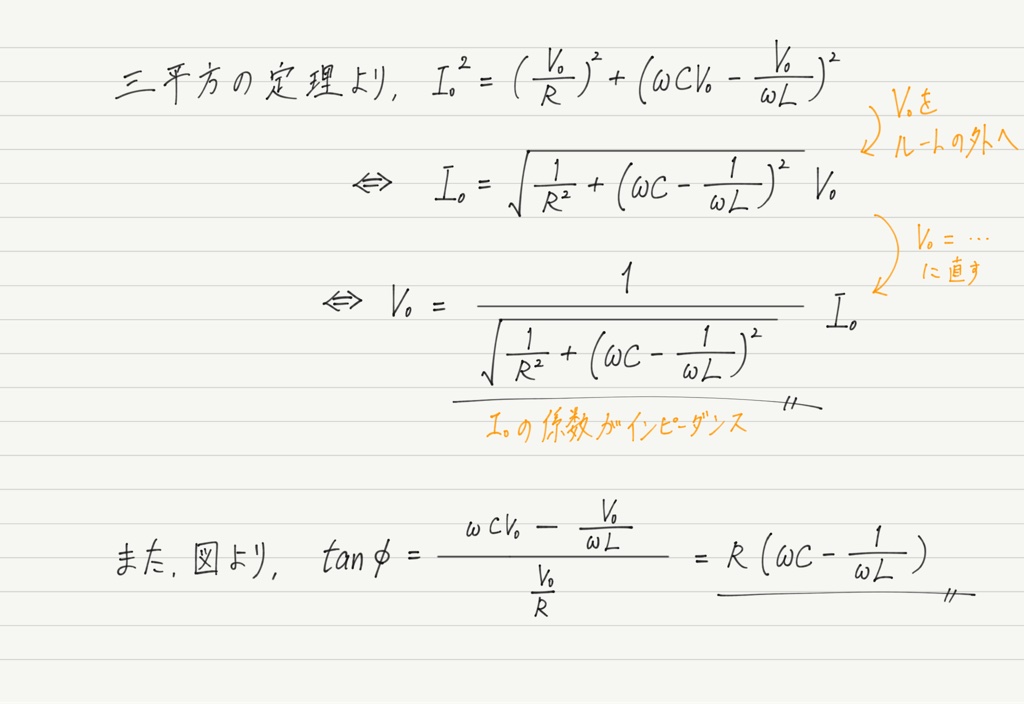 三平方の定理より, I₀² = (V₀/R)² + (ωCV₀ − V₀/ωL)²
V₀を
ルートの外へ
⇔ I₀ = √(1/R² + (ωC − 1/ωL)²) V₀
V₀ = …
に直す
⇔ V₀ = 1/√(1/R² + (ωC − 1/ωL)²) I₀
I₀の係数がインピーダンス
また, 図より, tanφ = (ωCV₀ − V₀/ωL)/(V₀/R) = R(ωC − 1/ωL)